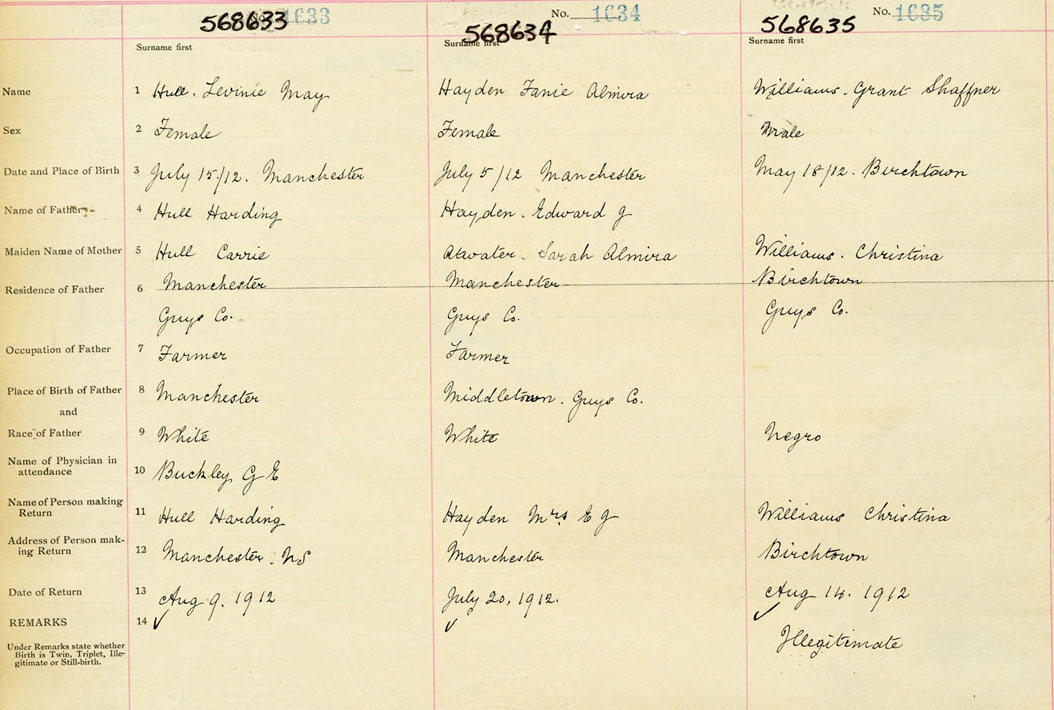 No. 1633 No. 1634 No. 1635
568633 568634 568635
Surname first Surname first Surname first
Name 1 Hull. Levinie May Hayden Fanie Almira Williams. Grant Shaffner
Sex 2 Female Female Male
Date and Place of Birth 3 July 15/12. Manchester July 5/12 Manchester May 18/12. Birchtown
Name of Father 4 Hull Harding Hayden. Edward J
Maiden Name of Mother 5 Hull Carrie Atwater. Sarah Almira Williams. Christina
Residence of Father 6 Manchester Manchester Birchtown
Guys Co. Guys Co. Guys Co.
Occupation of Father 7 Farmer Farmer
Place of Birth of Father 8 Manchester Middletown. Guys Co.
and
Race of Father 9 White White Negro
Name of Physician in
attendance 10 Buckley G E
Name of Person making
Return 11 Hull Harding Hayden Mrs E J Williams Christina
Address of Person mak-
ing Return 12 Manchester. NS Manchester Birchtown
Date of Return 13 Aug 9. 1912 July 20, 1912. Aug 14. 1912
REMARKS 14
Under Remarks state whether
Birth is Twin, Triplet, Ille-
gitimate or Still-birth.
Illegitimate